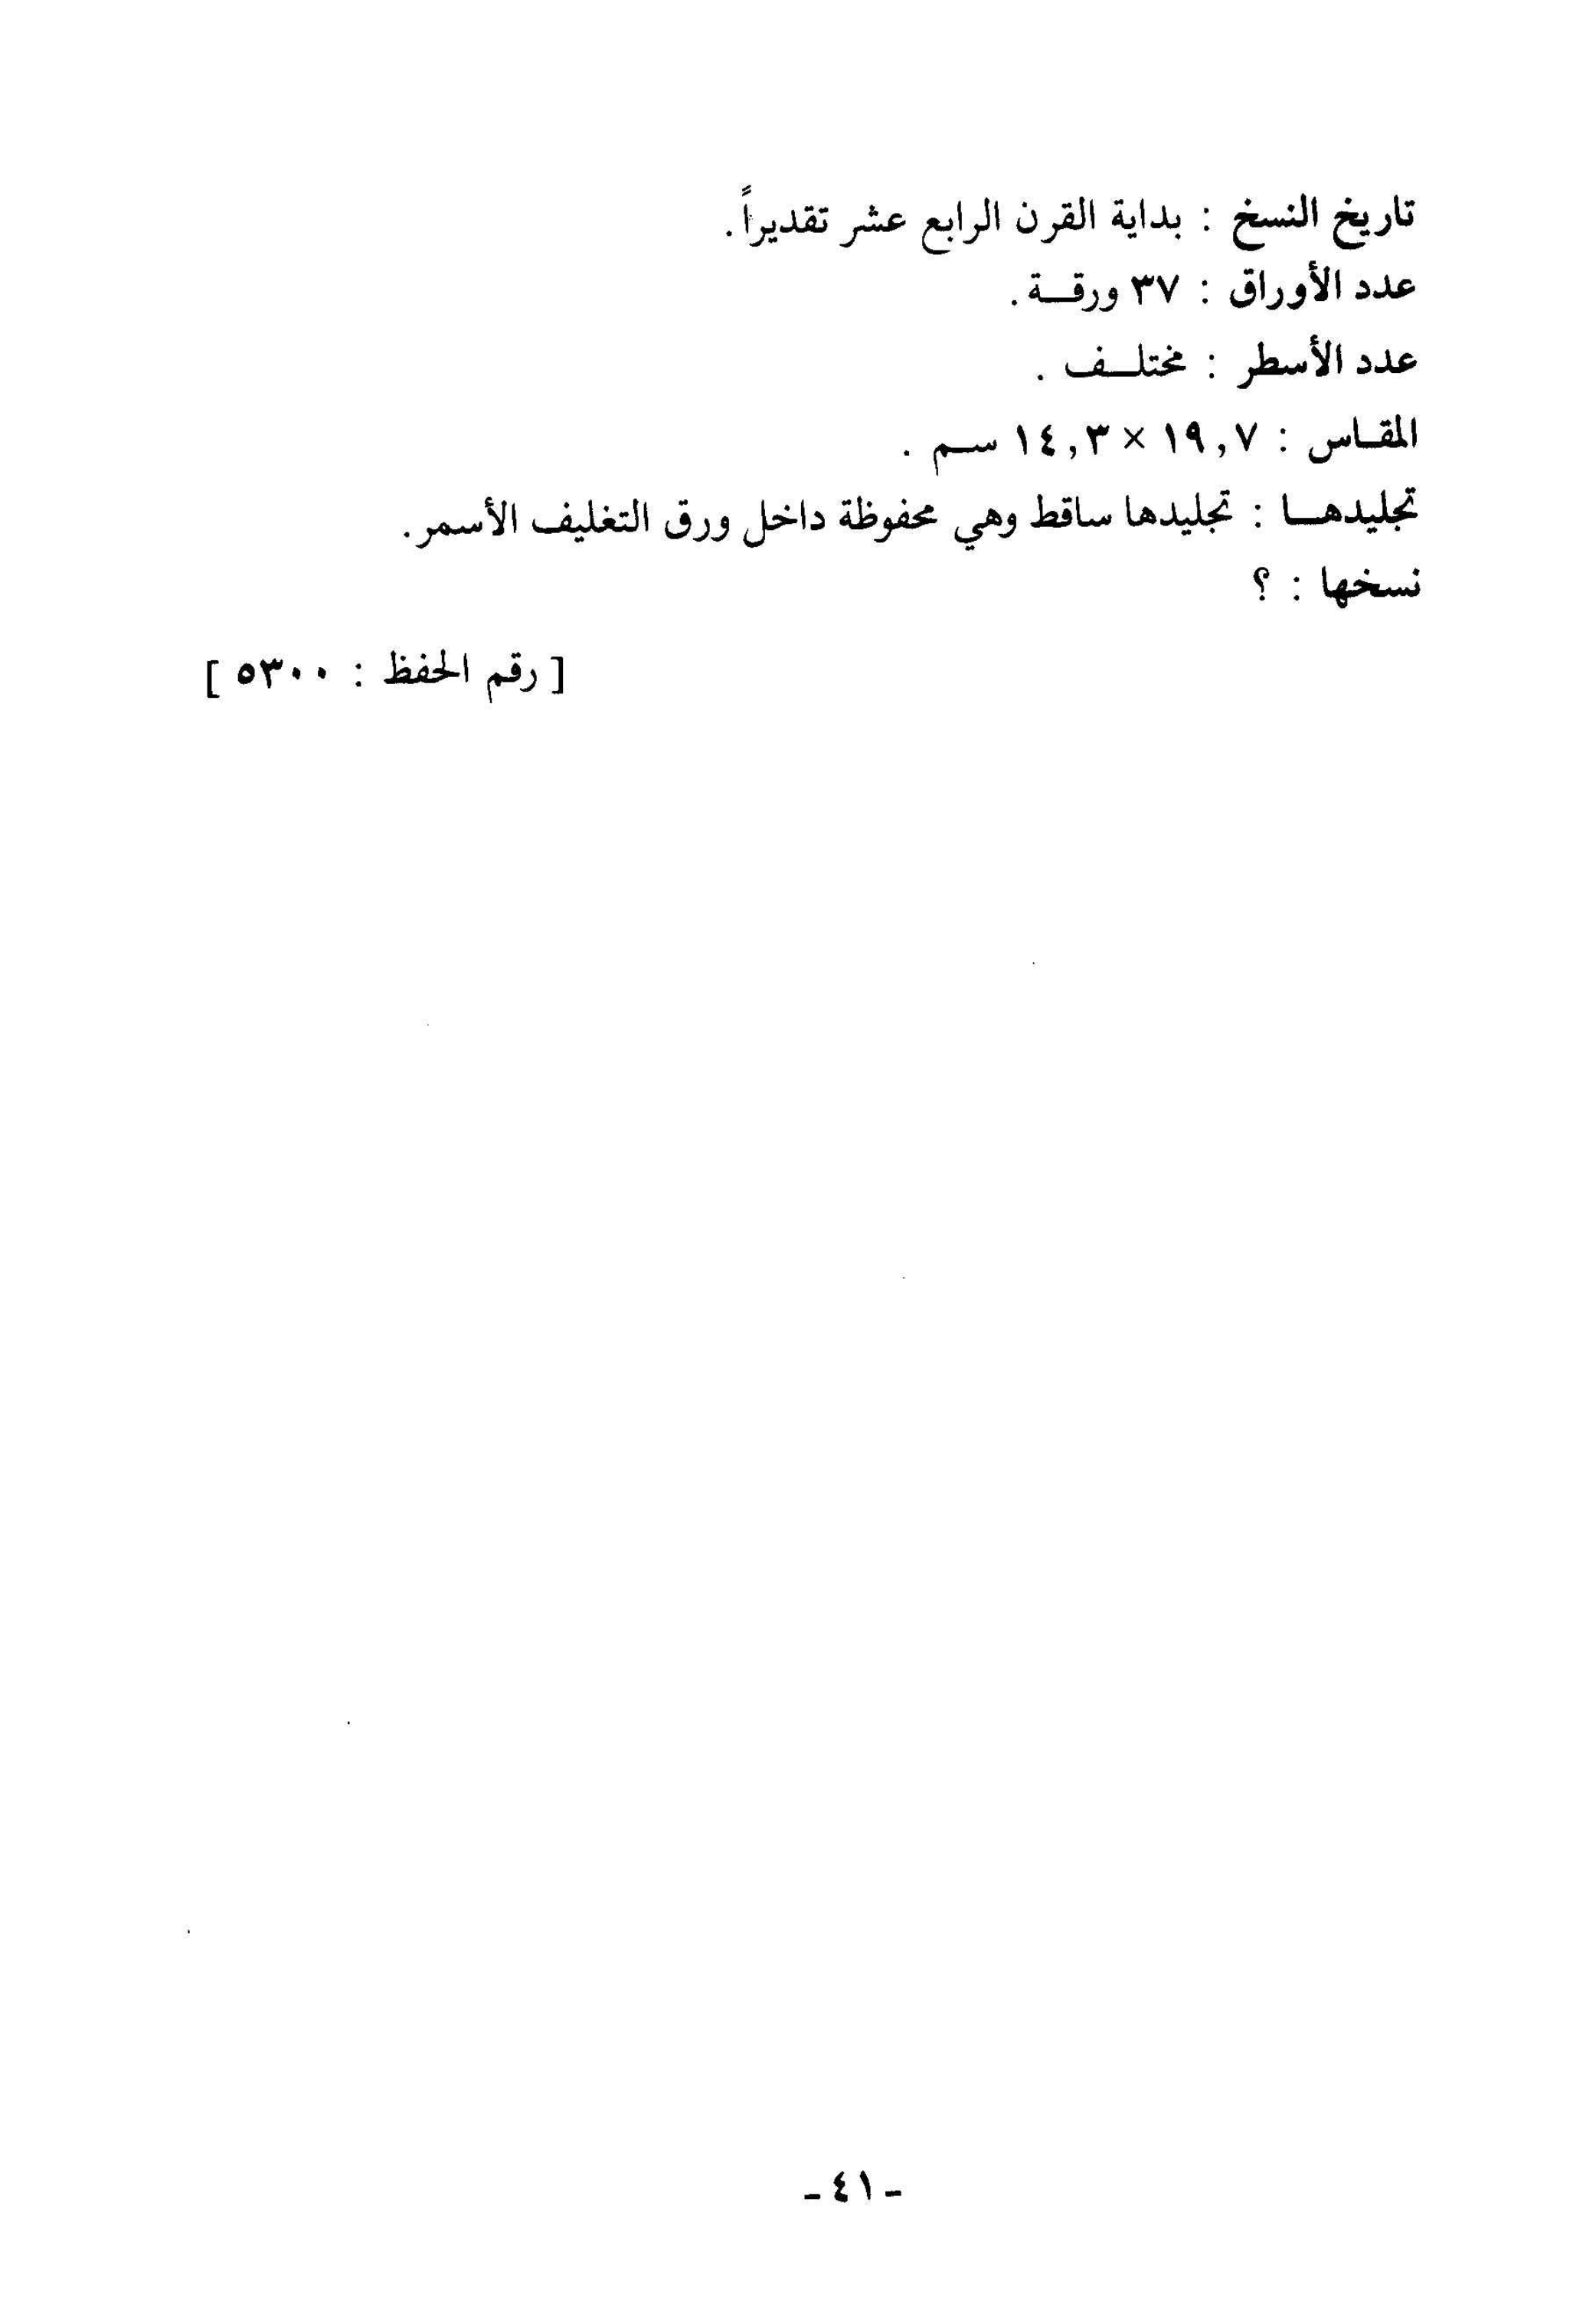 تاريخ النسخ : بداية القرن الرابع عشر تقديراً.
عدد الأوراق : ٣٧ ورقــة.
عدد الأسطر : مختلــف .
المقـاس : ١٩,٧ × ١٤,٣ ســم .
تجليدهــا : تجليدها ساقط وهي محفوظة داخل ورق التغليف الأسمر.
نسخها : ؟
[ رقم الحفظ : ٥٣٠٠ ]
- ٤١ -